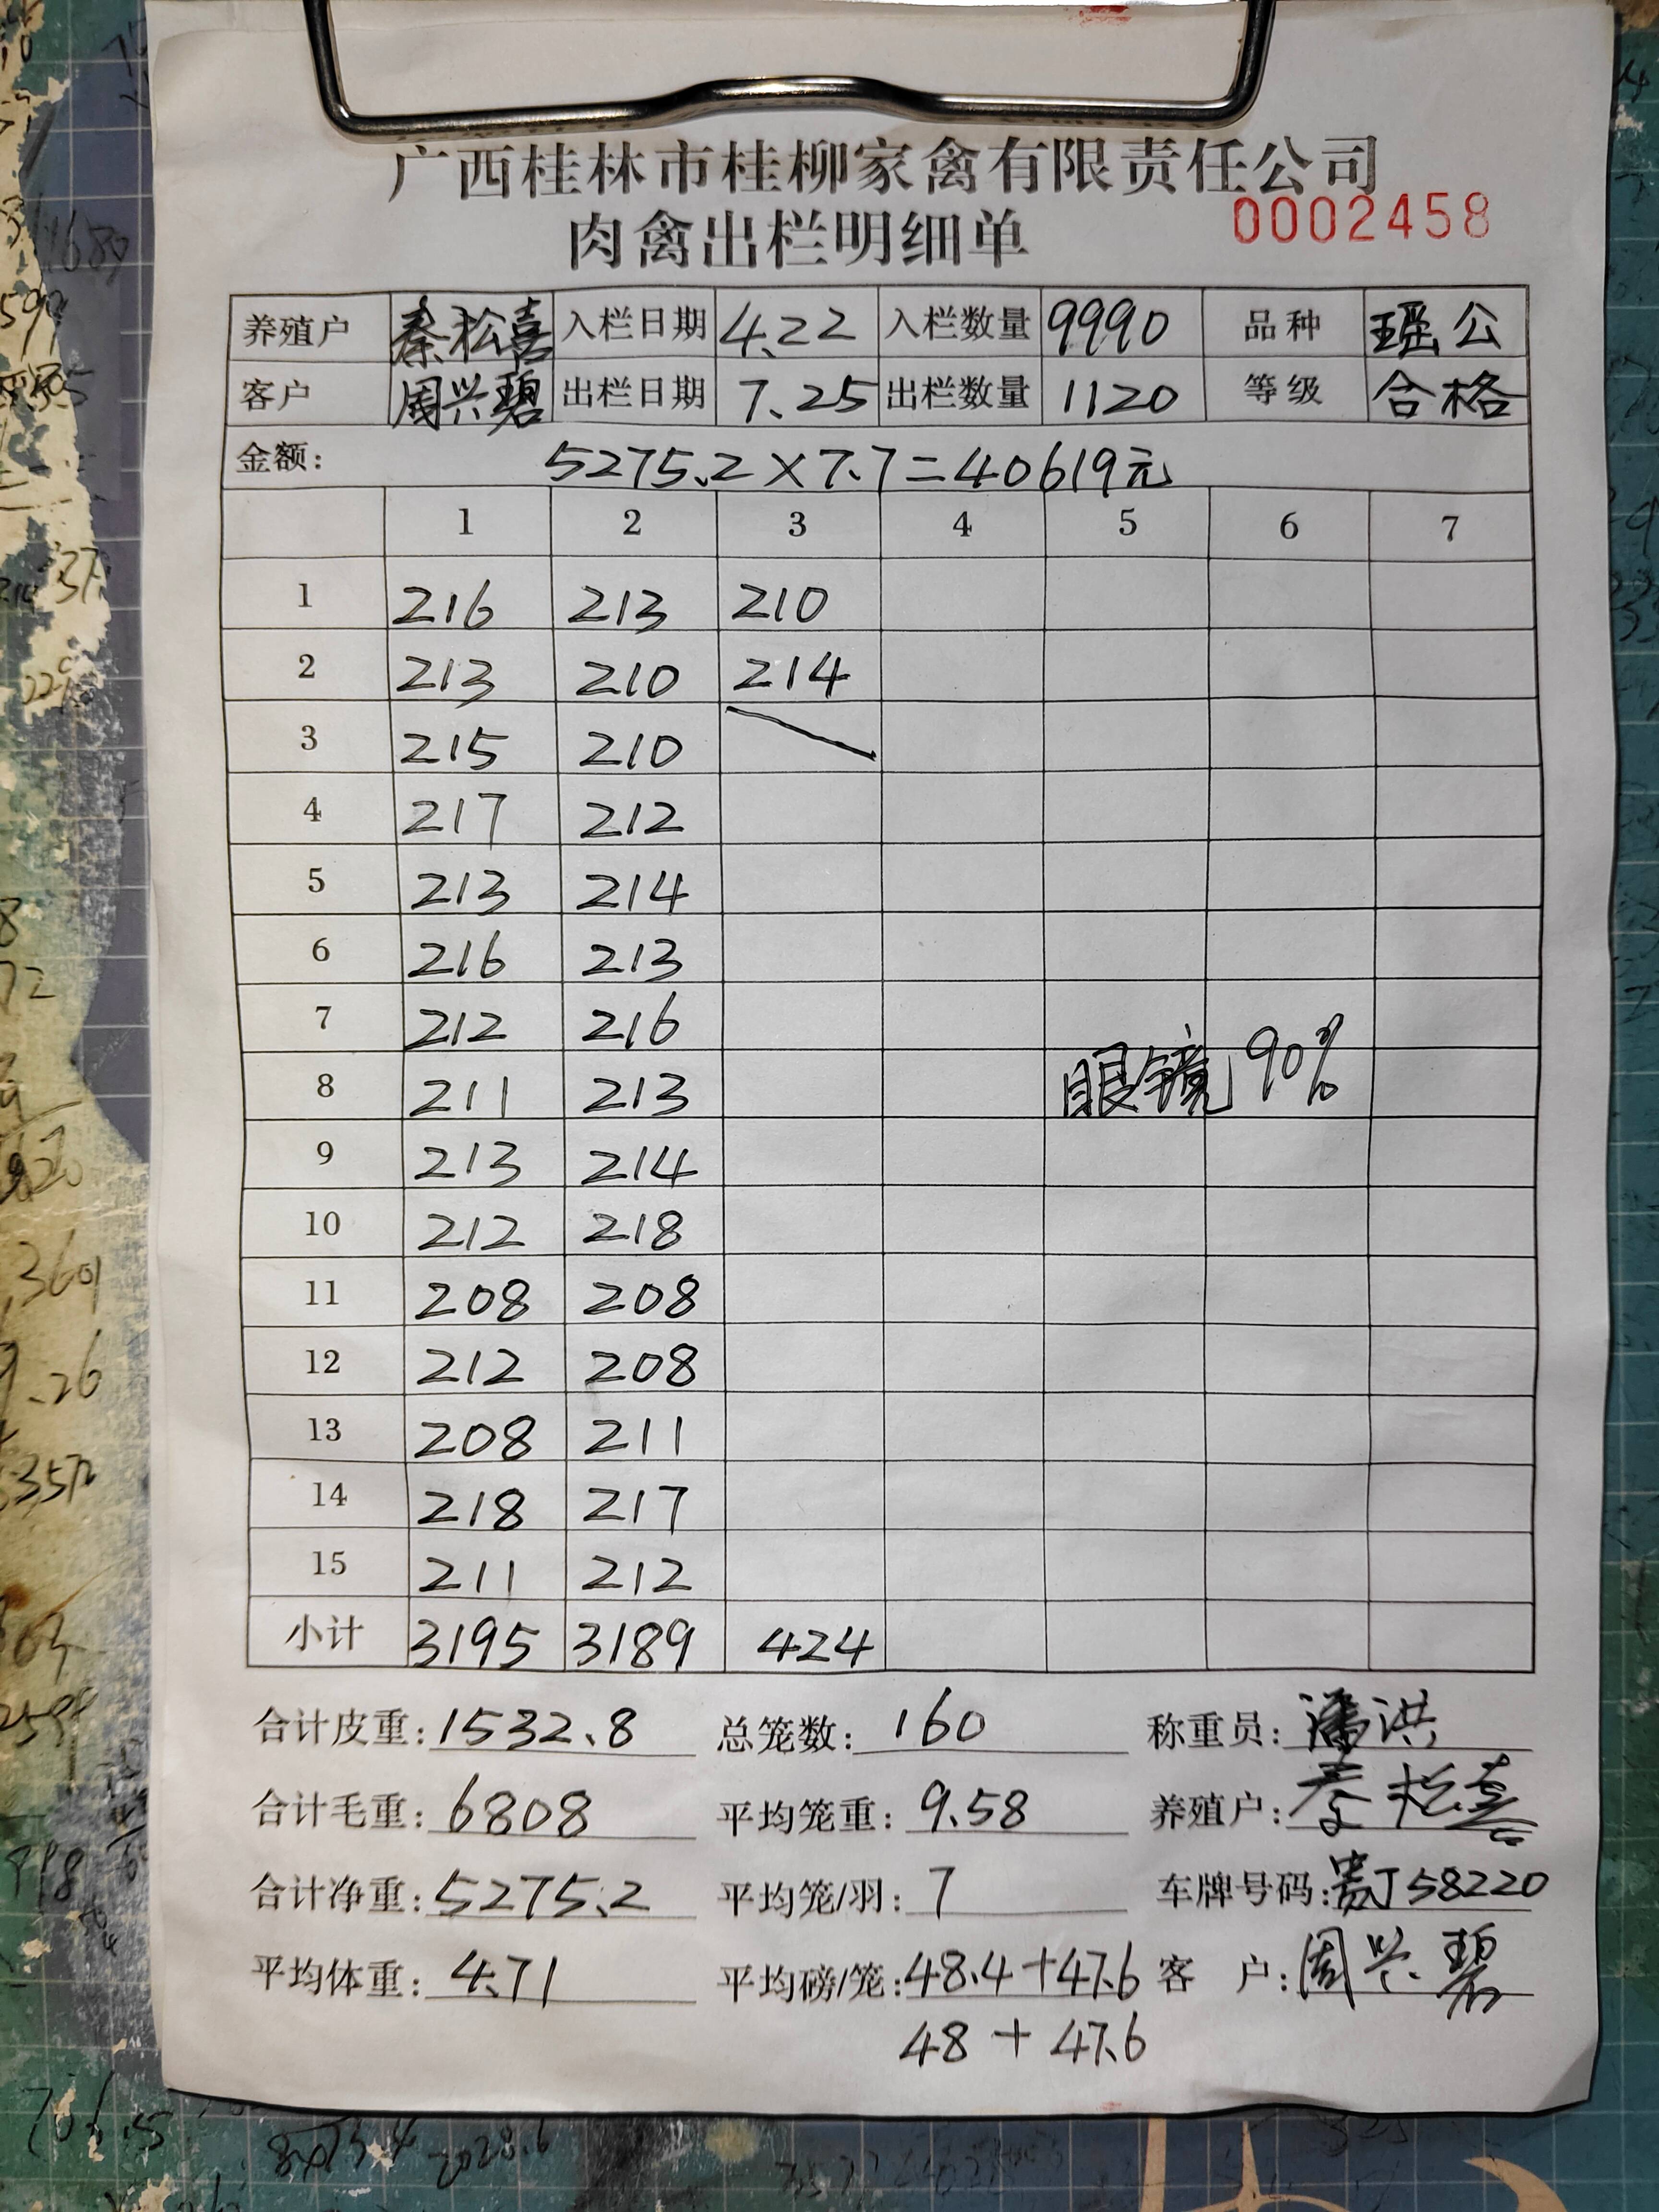 广西桂林市桂柳家禽有限责任公司
肉禽出栏明细单 0002458
养殖户 秦松喜 入栏日期 4.22 入栏数量 9990 品种 瑶公
客户 周兴碧 出栏日期 7.25 出栏数量 1120 等级 合格
金额: 5275.2×7.7=40619元
1 2 3 4 5 6 7
1 216 213 210
2 213 210 214
3 215 210
4 217 212
5 213 214
6 216 213
7 212 216
8 211 213 眼镜 90%
9 213 214
10 212 218
11 208 208
12 212 208
13 208 211
14 218 217
15 211 212
小计 3195 3189 424
合计皮重: 1532.8 总笼数: 160 称重员: 潘洪
合计毛重: 6808 平均笼重: 9.58 养殖户: 秦松喜
合计净重: 5275.2 平均笼/羽: 7 车牌号码: 贵J58220
平均体重: 4.71 平均磅/笼: 48.4+47.6 客户: 周兴碧
48+47.6